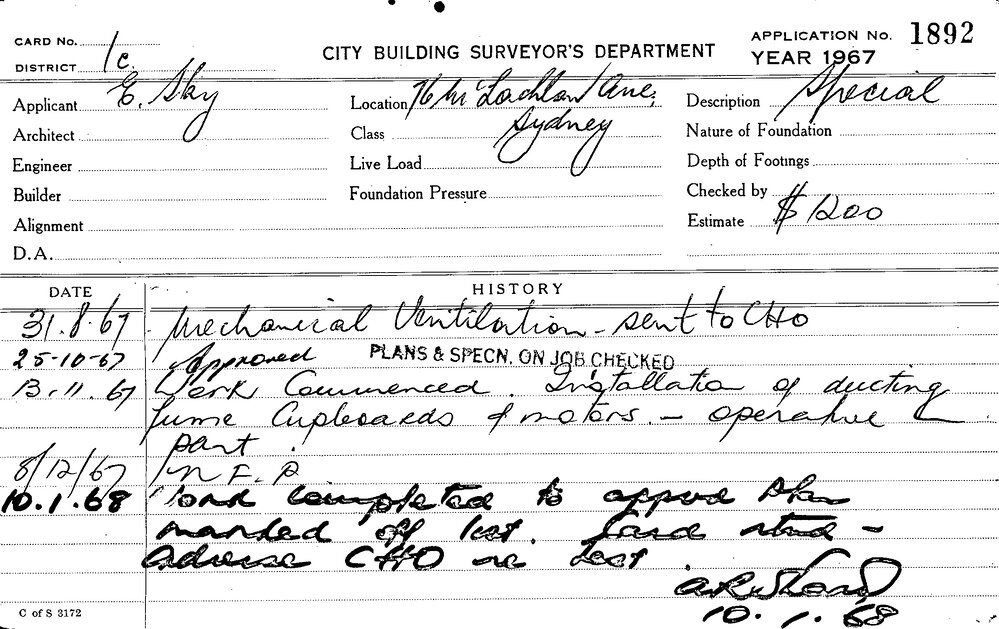 CARD No.
DISTRICT 1c
CITY BUILDING SURVEYOR'S DEPARTMENT
APPLICATION No. 1892
YEAR 1967
Applicant E. Sky
Architect
Engineer
Builder
Alignment
D.A.
Location 76 Lachlan Ave,
Class Sydney
Live Load
Foundation Pressure
Description Special
Nature of Foundation
Depth of Footings
Checked by
Estimate $1200
DATE HISTORY
31.8.67 Mechanical Ventilation - sent to CHO
25-10-67 Approved PLANS & SPECN. ON JOB CHECKED
13.11.67 Work Commenced. Installation of ducting
fume Cupboards & motors. - operative
part.
8/12/67 N.F.P
10.1.68 Work completed to appvd plan
marked off list. Card -
advise CHO re
10.1.68
C of S 3172